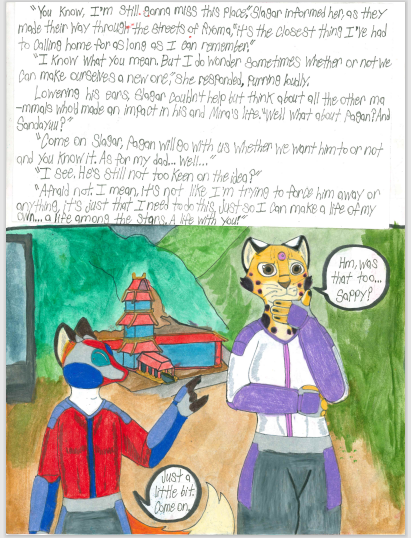 "You Know, I'm still gonna miss this place," Slagar informed her, as they
made their way through the streets of Axoma, "It's the closest thing I've had
to calling home for as long as I can remember."
"I Know what you mean. But I do wonder sometimes whether or not we
can make ourselves a new one," she responded, purring loudly.
Lowering his ears, Slagar couldn't help but think about all the other ma
-mmals who'd made an impact in his and Mira's life. "Well what about Pagan? And
Sandayuu?"
"Come on Slagar, Pagan will go with us whether we want him to or not
and you know it. As for my dad... Well..."
"I see. He's still not too Keen on the idea?"
"Afraid not. I mean, it's not like I'm trying to force him away or
anything, it's just that I need to do this, just so I can make a life of my
own... a life among the stars. A life with you!"
Hm, was
that too...
Sappy?
Just a
little bit.
Come on.